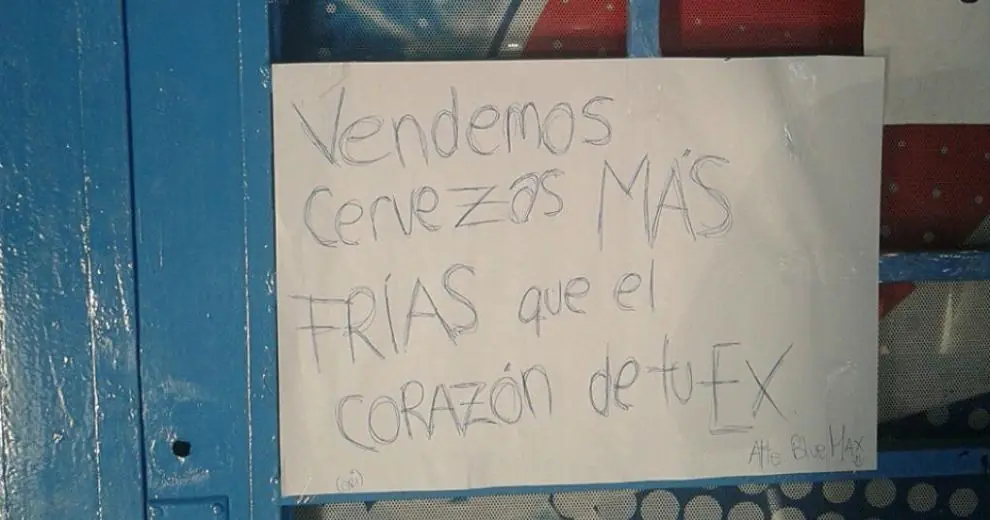 Vendemos
cervezas MÁS
FRÍAS que el
CORAZÓN de tu EX
Atte BlueMAX